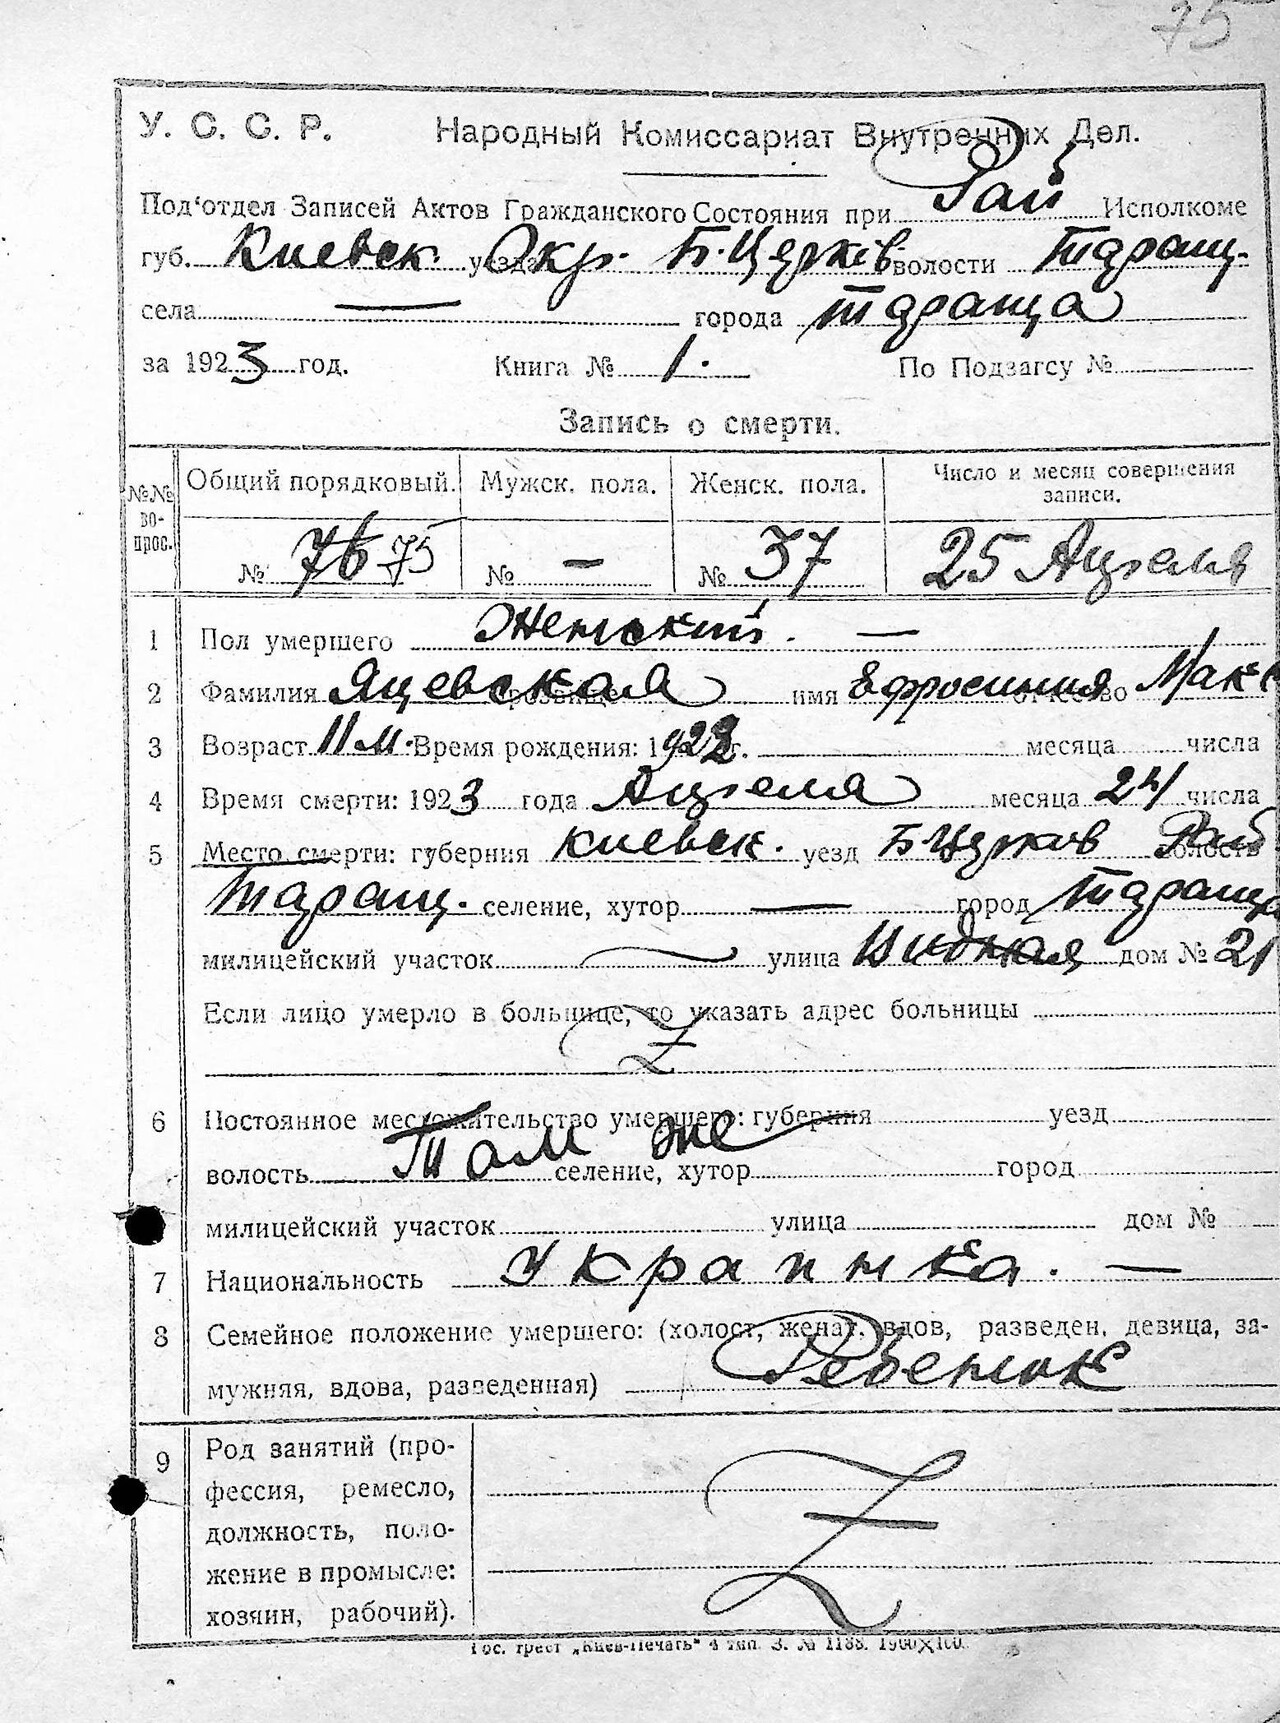 75
У. С. С. Р. Народный Комиссариат Внутренних Дел.
Под'отдел Записей Актов Гражданского Состояния при Рай Исполкоме
губ. Киевск. уезда Окр. Б.-Церков волости Таращ.
села — города Тараща
за 1923 год. Книга № 1. По Подзагсу №
Запись о смерти.
№№ вопрос. Общий порядковый. Мужск. пола. Женск. пола. Число и месяц совершения записи.
№ 76 75 № — № 37 25 Апреля
1 Пол умершего Женский. —
2 Фамилия прозвище Яцевская имя Ефросиния отчество Макс
3 Возраст 11 м. Время рождения: 1922 г. месяца числа
4 Время смерти: 1923 года Апреля месяца 24 числа
5 Место смерти: губерния Киевск. уезд Б-Церков Рай волость
Таращ. селение, хутор — город Тараща
милицейский участок улица дом № 21
Если лицо умерло в больнице, то указать адрес больницы
Z
6 Постоянное местожительство умершего: губерния уезд
волость Там же селение, хутор город
милицейский участок улица дом №
7 Национальность Украинка. —
8 Семейное положение умершего: (холост, женат, вдов, разведен, девица, за-
мужняя, вдова, разведенная) Ребенок
9 Род занятий (про-
фессия, ремесло,
должность, поло-
жение в промысле:
хозяин, рабочий).
Z
Гос. трест „Киев-Печать" 4 тип. З. № 1188. 1900×100.